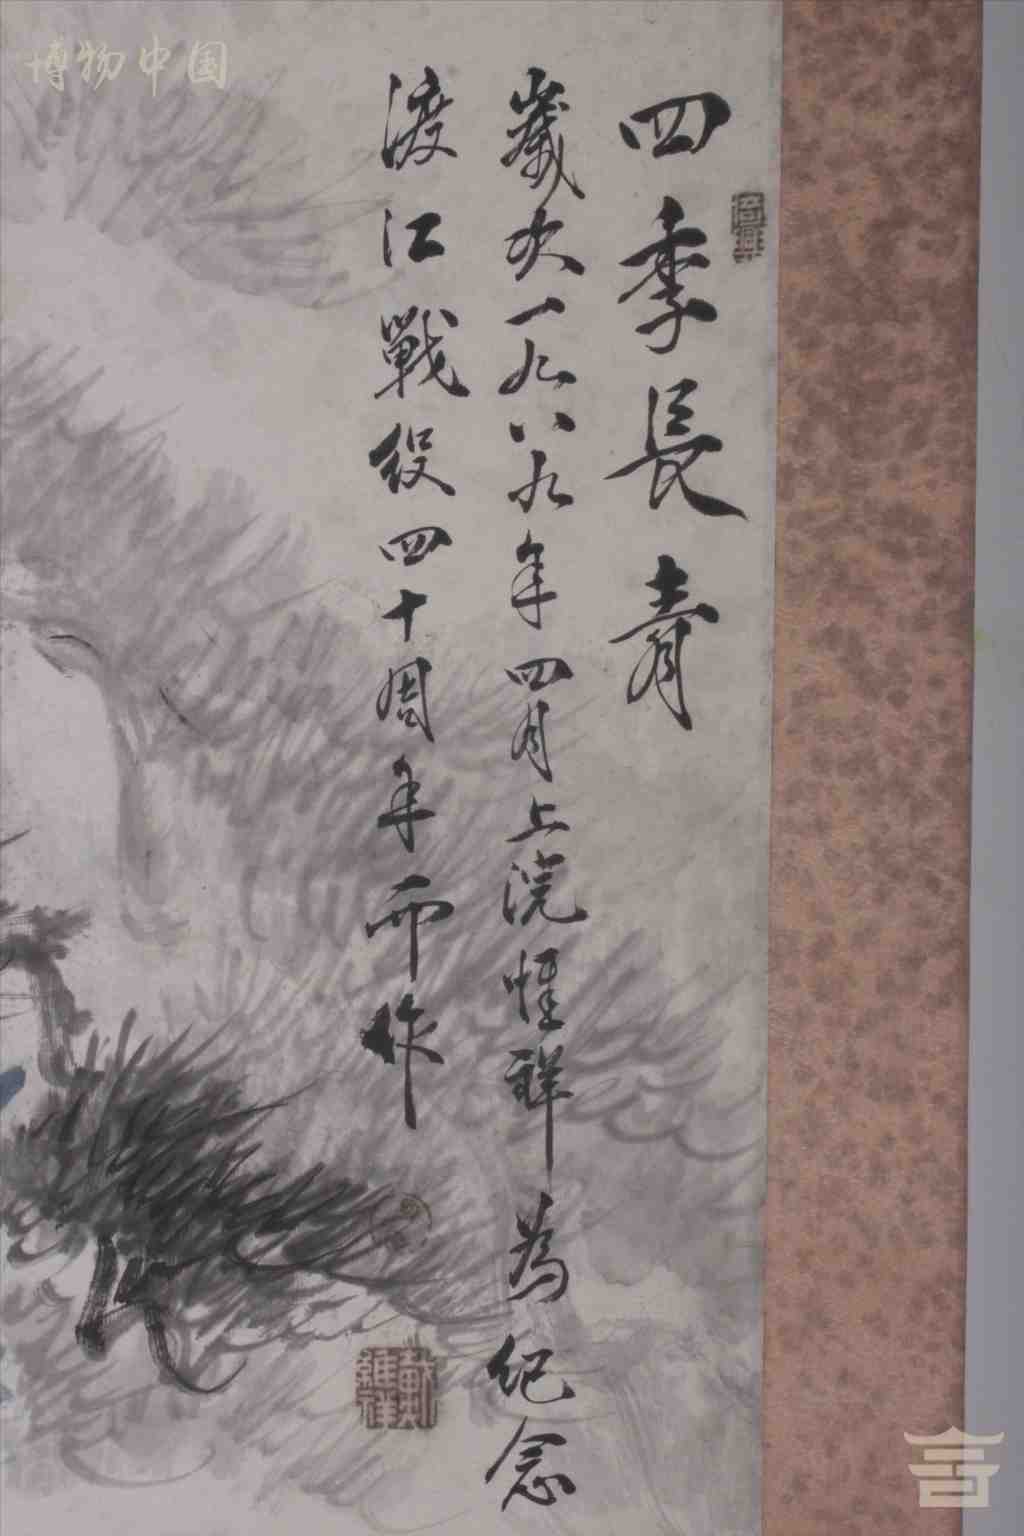 四季長青
歲次一九八九年四月上浣惟祥為紀念
渡江戰役四十周年而作
戴維祥
博物中国